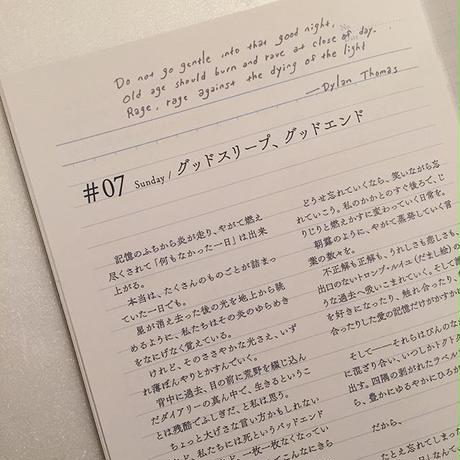 Do not go gentle into that good night,
Old age should burn and rave at close of day.
Rage, rage against the dying of the light
—Dylan Thomas
#07 Sunday / グッドスリープ、グッドエンド
記憶のふちから炎が走り、やがて燃え
尽くされて「何もなかった一日」は出来
上がる。
本当は、たくさんのものごとが詰まっ
ていた一日でも。
星が消え去った後の光を地上から眺
めるように、私たちはその炎のゆらめき
をなにげなく覚えている。
けれど、そのささやかな光さえ、いず
れ薄ぼんやりとかすんでいく。
背中に過去、目の前に荒野を綴じ込ん
だダイアリーの真ん中で、生きるというこ
とは残酷でふしぎだ、と私は思う。
ちょっと大げさな言い方かもしれない
けど、私たちには死というバッドエンド
一枚一枚なくなってい
でこんなにきら
どうせ忘れていくなら、笑いながら忘
れていこう。私のかかとのすぐ後ろで、じ
りじりと燃えかすに変わっていく日常を。
朝露のように、やがて蒸発していく言
葉の数々を。
不正解も正解も、うれしさも悲しさも、
出口のないトロンプ・ルイユ（だまし絵）の
うな過去へ吸いこまれていく。そして誰
を好きになったり、触れ合ったり、
合ったりした愛の記憶だけがかすかに
そして——それらはびんのな
に混ざり合い、いつしかトクトク
出す。四隅の剥がれたラベル
ら、豊かにゆるやかにひろか
だから、
たとえ忘れてしまっ
一日」なんて、